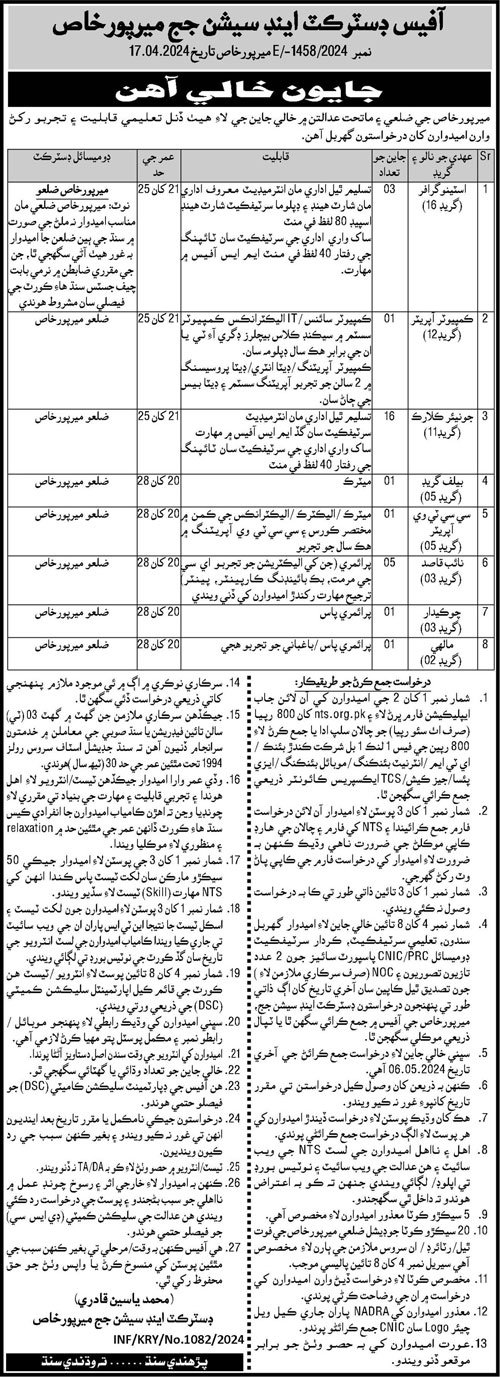 آفيس ڊسٽرڪٽ اينڊ سيشن جج ميرپورخاص
نمبر E/-1458/2024 ميرپورخاص تاريخ 17.04.2024
جايون خالي آهن
ميرپورخاص جي ضلعي ۽ ماتحت عدالتن ۾ خالي جاين جي لاءِ هيٺ ڏنل تعليمي قابليت ۽ تجربو رکڻ
وارن اميدوارن کان درخواستون گهربل آهن.
Sr عهدي جو نالو ۽ گريڊ جاين جو تعداد قابليت عمر جي حد ڊوميسائل ڊسٽرڪٽ
1 اسٽينوگرافر (گريڊ 16) 03 تسليم ٿيل اداري مان انٽرميڊيٽ معروف اداري 21 کان 25 ميرپورخاص ضلعو
مان شارٽ هينڊ ۽ ڊپلوما سرٽيفڪيٽ شارٽ هينڊ
اسپيڊ 80 لفظ في منٽ
ساک واري اداري جي سرٽيفڪيٽ سان ٽائپنگ
جي رفتار 40 لفظ في منٽ ايم ايس آفيس ۾
مهارت.
نوٽ: ميرپورخاص ضلعي مان
مناسب اميدوار نه ملڻ جي صورت
۾ سنڌ جي ٻين ضلعن جا اميدوار
به غور هيٺ آڻي سگهجي ٿا، جن
جي مقرري ضابطن ۾ نرمي بابت
چيف جسٽس سنڌ هاءِ ڪورٽ جي
فيصلي سان مشروط هوندي
2 ڪمپيوٽر آپريٽر (گريڊ 12) 01 ڪمپيوٽر سائنس/IT اليڪٽرانڪس ڪمپيوٽر 21 کان 25 ضلعو ميرپورخاص
سسٽم ۾ سيڪنڊ ڪلاس بيچلرز ڊگري آءِ ٽي يا
ان جي برابر هڪ سال ڊپلومه سان.
ڪمپيوٽر آپريٽنگ/ڊيٽا انٽري/ڊيٽا پروسيسنگ
۾ 2 سالن جو تجربو آپريٽنگ سسٽم ۽ ڊيٽا بيس
جي ڄاڻ سان.
3 جونيئر ڪلارڪ (گريڊ 11) 16 تسليم ٿيل اداري مان انٽرميڊيٽ 21 کان 25 ضلعو ميرپورخاص
سرٽيفڪيٽ سان گڏ ايم ايس آفيس ۾ مهارت
ساک واري اداري جي سرٽيفڪيٽ سان ٽائپنگ
جي رفتار 40 لفظ في منٽ
4 بيلف گريڊ (05) 01 ميٽرڪ 20 کان 28 ضلعو ميرپورخاص
5 سي سي ٽي وي آپريٽر (گريڊ 05) 01 ميٽرڪ/اليڪٽرڪ/اليڪٽرانڪس جي ڪمن ۾ 20 کان 28 ضلعو ميرپورخاص
مختصر ڪورس ۽ سي سي ٽي وي آپريٽنگ ۾
هڪ سال جو تجربو
6 نائب قاصد (گريڊ 03) 05 پرائمري (جن کي اليڪٽريشن جو تجربو اي سي 20 کان 28 ضلعو ميرپورخاص
جي مرمت، بڪ بائينڊنگ ڪارپينٽر، پينٽر)
ترجيح مهارت رکندڙ اميدوارن کي ڏني ويندي
7 چوڪيدار (گريڊ 03) 01 پرائمري پاس 20 کان 28 ضلعو ميرپورخاص
8 مالهي (گريڊ 02) 01 پرائمري پاس/باغباني جو تجربو هجي 20 کان 28 ضلعو ميرپورخاص
درخواست جمع ڪرڻ جو طريقيڪار:
1. شمار نمبر 1 کان 2 جي اميدوارن کي آن لائين جاب
ايپليڪيشن فارم ڀرڻ لاءِ nts.org.pk ۽ کان 800 رپيا
(صرف اٺ سئو رپيا) جو چالان سلپ ادا يا جمع ڪرڻ لاءِ
800 رپين جي فيس 1 لنڪ 1 بل شرڪت ڪندڙ بئنڪ/
اي ٽي ايم/انٽرنيٽ بئنڪنگ/موبائل بئنڪنگ/ايزي
پئسا/جيز ڪيش/TCS ايڪسپريس ڪائونٽر ذريعي
جمع ڪرائي سگهجن ٿا.
2. شمار نمبر 1 کان 3 پوسٽن لاءِ اميدوار آن لائن درخواست
فارم جمع ڪرائيندا ۽ NTS کي فارم ۽ چالان جي هارڊ
ڪاپي موڪلڻ جي ضرورت ناهي وڌيڪ ڪنهن به
ضرورت لاءِ اميدوار کي درخواست فارم جي ڪاپي پاڻ
وٽ رکڻ گهرجي.
3. شمار نمبر 1 کان 3 تائين ذاتي طور تي ڪا به درخواست
وصول نه ڪئي ويندي.
4. شمار نمبر 4 کان 8 تائين خالي جاين لاءِ اميدوار گهربل
سندون، تعليمي سرٽيفڪيٽ، ڪردار سرٽيفڪيٽ
ڊوميسائل CNIC/PRC پاسپورٽ سائيز جون 2 عدد
تازيون تصويرون ۽ NOC (صرف سرڪاري ملازمن لاءِ)
جون تصديق ٿيل ڪاپين سان آخري تاريخ کان اڳ ذاتي
طور تي پنهنجون درخواستون ڊسٽرڪٽ اينڊ سيشن جج،
ميرپورخاص جي آفيس ۾ جمع ڪرائي سگهن ٿا يا ٽپال
ذريعي موڪلي سگهجن ٿا.
5. سڀني خالي جاين لاءِ درخواست جمع ڪرائڻ جي آخري
تاريخ 06.05.2024 آهي.
6. ڪنهن به ذريعي کان وصول ڪيل درخواستن تي مقرر
تاريخ کانپوءِ غور نه ڪيو ويندو.
7. هڪ کان وڌيڪ پوسٽن لاءِ درخواست ڏيندڙ اميدوارن کي
هر پوسٽ لاءِ الڳ درخواست جمع ڪرائڻي پوندي.
8. اهل ۽ نااهل اميدوارن جي لسٽ NTS جي ويب
سائيٽ ۽ هن عدالت جي ويب سائيٽ ۽ نوٽيس بورڊ
تي اپلوڊ/لڳائي ويندي جنهن تي ڪو به اعتراض
هوندو ته داخل ٿي سگهجندو.
9. 5 سيڪڙو ڪوٽا معذور اميدوارن لاءِ مخصوص آهي.
10. 20 سيڪڙو ڪوٽا جوڊيشل ضلعي ميرپورخاص جي فوت
ٿيل/رٽائرڊ/ان سروس ملازمن جي ٻارن لاءِ مخصوص
آهي سيريل نمبر 4 کان 8 تائين پاليسي موجب.
11. مخصوص ڪوٽا لاءِ درخواست ڏيڻ وارن اميدوارن کي
درخواست ۾ ان جي وضاحت ڪرڻي پوندي.
12. معذور اميدوارن کي NADRA پاران جاري ڪيل ويل
چيئر Logo سان CNIC جمع ڪرائڻو پوندو.
13. عورت اميدوارن کي به حصو وٺڻ جو برابر
موقعو ڏنو ويندو.
14. سرڪاري نوڪري ۾ اڳ ۾ ئي موجود ملازم پنهنجي
کاتي ذريعي درخواست ڏئي سگهن ٿا.
15. جيڪڏهن سرڪاري ملازمن جن گهٽ ۾ گهٽ 03 (ٽي)
سالن تائين فيڊريشن يا سنڌ صوبي جي معاملن ۾ خدمتون
سرانجام ڏنيون آهن ته سنڌ جڊيشل اسٽاف سروس رولز
1994 تحت مٿئين عمر جي حد 30 (ٽيهه سال) هوندي.
16. وڏي عمر وارا اميدوار جيڪڏهن ٽيسٽ/انٽرويو ۾ اهل
هوندا ۽ تجربي قابليت ۽ مهارت جي بنياد تي مقرري لاءِ
چونڊيا وڃن ته اهڙن ڪامياب اميدوارن جا انفرادي ڪيس
سنڌ هاءِ ڪورٽ ڏانهن عمر جي مٿئين حد ۾ relaxation
۽ منظوري لاءِ موڪليا ويندا.
17. شمار نمبر 1 کان 3 جي پوسٽن لاءِ اميدوار جيڪي 50
سيڪڙو مارڪن سان لکت ٽيسٽ پاس ڪندا انهن کي
NTS مهارت (Skill) ٽيسٽ لاءِ سڏيو ويندو.
18. شمار نمبر 1 کان 3 پوسٽن لاءِ اميدوارن جون لکت ٽيسٽ ۽
اسڪل ٽيسٽ جا نتيجا اين ٽي ايس پاران ان جي ويب سائيٽ
تي جاري ڪيا ويندا ڪامياب اميدوارن جي لسٽ انٽرويو جي
تاريخ سان گڏ ڪورٽ جي نوٽيس بورڊ تي لڳائي ويندي.
19. شمار نمبر 4 کان 8 تائين پوسٽن لاءِ انٽرويو/ٽيسٽ هن
ڪورٽ جي قائم ڪيل ڊپارٽمينٽل سليڪشن ڪميٽي
(DSC) جي ذريعي ورتي ويندي.
20. سڀني اميدوارن کي وڌيڪ رابطي لاءِ پنهنجو موبائل/
رابطو نمبر ۽ مڪمل پوسٽل پتو مهيا ڪرڻ لازمي آهي.
21. اميدوارن کي انٽرويو جي وقت سندن اصل دستاويز آڻڻا پوندا.
22. خالي جاين جو تعداد وڌائي يا گهٽائي سگهجي ٿو.
23. هن آفيس جي ڊپارٽمينٽ سليڪشن ڪاميٽي (DSC) جو
فيصلو حتمي هوندو.
24. درخواستون جيڪي نامڪمل يا مقرر تاريخ بعد اينديون
انهن تي غور نه ڪيو ويندو ۽ بغير ڪنهن سبب جي رد
ڪيون وينديون.
25. ٽيسٽ/انٽرويو ۾ حصو وٺڻ لاءِ ڪو به TA/DA نه ڏنو ويندو.
26. ڪنهن به اميدوار لاءِ خارجي اثر ۽ رسوخ چونڊ عمل ۾
نااهلي جو سبب بڻجندو ۽ پوسٽ جي درخواست رد ڪئي
ويندي هن عدالت جي سليڪشن ڪميٽي (ڊي ايس سي)
جو فيصلو حتمي هوندو.
27. هي آفيس ڪنهن به وقت/مرحلي تي بغير ڪنهن سبب جي
مٿئين پوسٽن کي منسوخ ڪرڻ يا واپس وٺڻ جو حق
محفوظ رکي ٿي.
(محمد ياسين قادري)
ڊسٽرڪٽ اينڊ سيشن جج ميرپورخاص
INF/KRY/No.1082/2024
پڙهندي سنڌ ...... ته وڌندي سنڌ